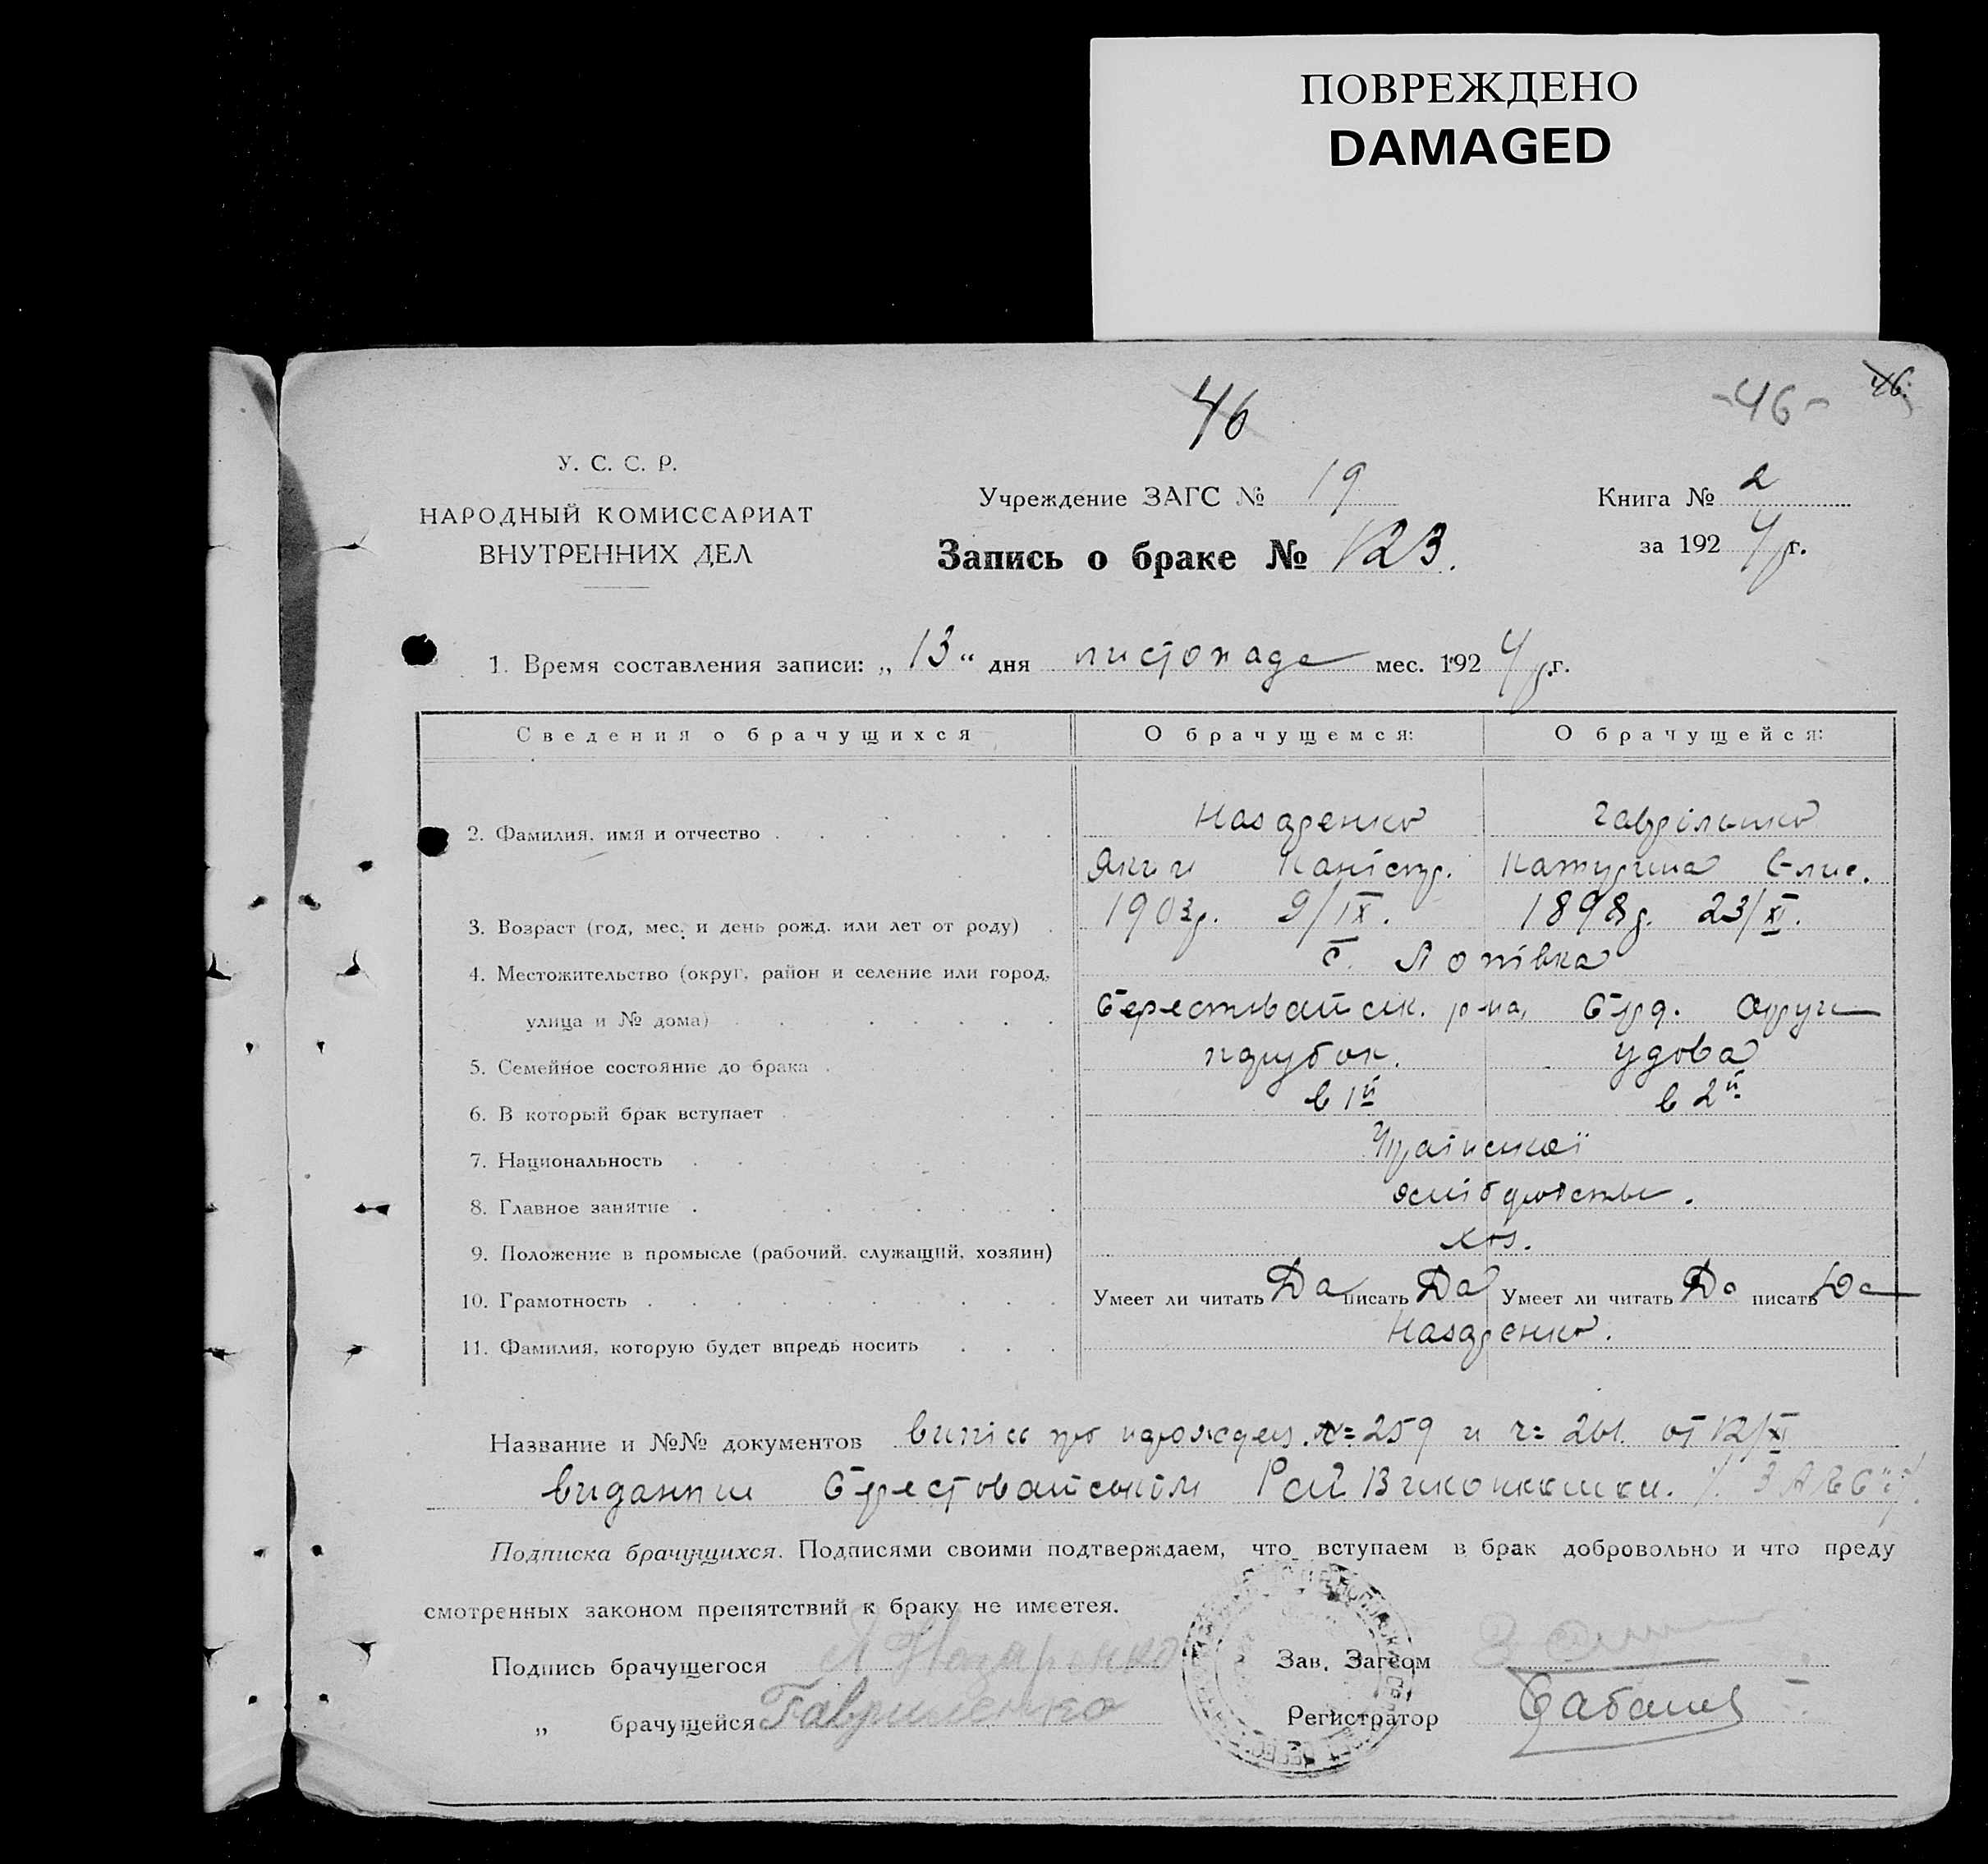 ПОВРЕЖДЕНО
DAMAGED
46
-46-
46.
У. С. С. Р.
НАРОДНЫЙ КОМИССАРИАТ
ВНУТРЕННИХ ДЕЛ
Учреждение ЗАГС № 19
Запись о браке № 123.
Книга № 2
за 1924 г.
1. Время составления записи: „ 13 “ дня листопада мес. 1924 г.
Сведения о брачущихся О брачущемся: О брачущейся:
2. Фамилия, имя и отчество Назаренко Гаврільшко
Яким Каністр. Катерина Елис.
3. Возраст (год, мес. и день рожд. или лет от роду) 1903 р. 9/IX. 1898 р. 23/XI.
4. Местожительство (округ, район и селение или город, с. Попівка
улица и № дома) Берестовайськ. р-на, Берд. Округи
5. Семейное состояние до брака парубок. удова
6. В который брак вступает в 1й в 2й
7. Национальность Української
8. Главное занятие хліборобство.
9. Положение в промысле (рабочий, служащий, хозяин) хоз.
10. Грамотность Умеет ли читать Да писать Да Умеет ли читать Да писать Да
11. Фамилия, которую будет впредь носить Назаренко.
Название и №№ документов випісь про народжен. 259 и 261 от 12/XI
видании Берестовайським Рай Виконкомом. ЗАГС
Подписка брачущихся. Подписями своими подтверждаем, что вступаем в брак добровольно и что преду
смотренных законом препятствий к браку не имеется.
Подпись брачущегося Назаренко Зав. Загсом
„ брачущейся Гавриленко Регистратор